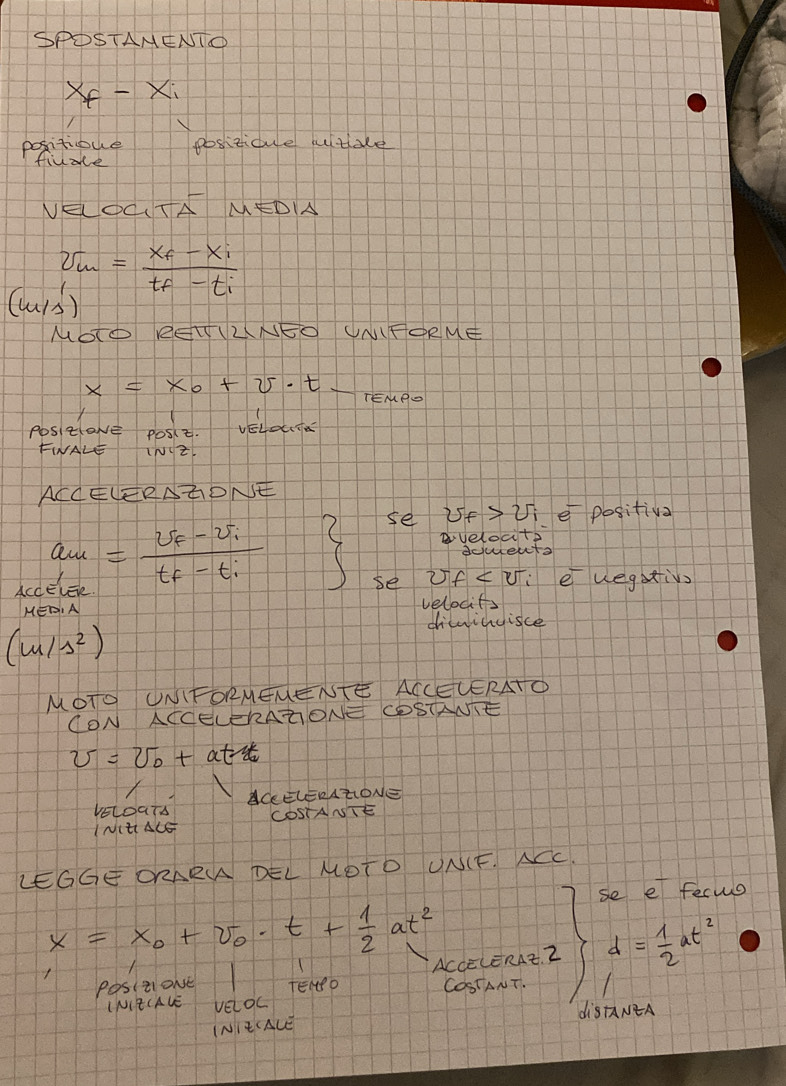 SPOSTAMENTO
xf - xi
posizione finale
posizione iniziale
VELOCITÀ MEDIA
vm = (xf - xi) / (tf - ti)
(m/s)
MOTO RETTILINEO UNIFORME
x = x0 + v · t
TEMPO
POSIZIONE FINALE
POSIZ. INIZ.
VELOCITÀ
ACCELERAZIONE
am = (vf - vi) / (tf - ti)
ACCELER. MEDIA
(m/s²)
se vf > vi è positiva
velocità aumenta
se vf < vi è negativa
velocità diminuisce
MOTO UNIFORMEMENTE ACCELERATO
CON ACCELERAZIONE COSTANTE
v = v0 + at
VELOCITÀ INIZIALE
ACCELERAZIONE COSTANTE
LEGGE ORARIA DEL MOTO UNIF. ACC.
x = x0 + v0 · t + 1/2 at²
POSIZIONE INIZIALE
VELOC INIZIALE
TEMPO
ACCELERAZ. COSTANT.
se è fermo
d = 1/2 at²
DISTANZA